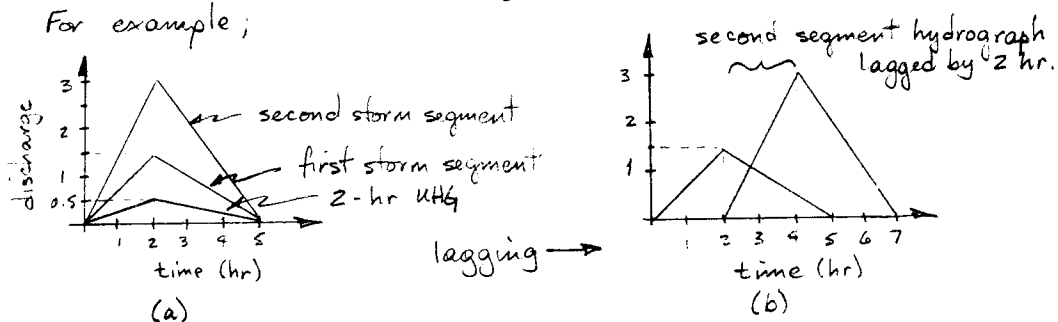 For example;
discharge
3
2
1
0.5
1 2 3 4 5
time (hr)
(a)
second storm segment
first storm segment
2-hr UHG
lagging
second segment hydrograph
lagged by 2 hr.
3
2
1
1 2 3 4 5 6 7
time (hr)
(b)